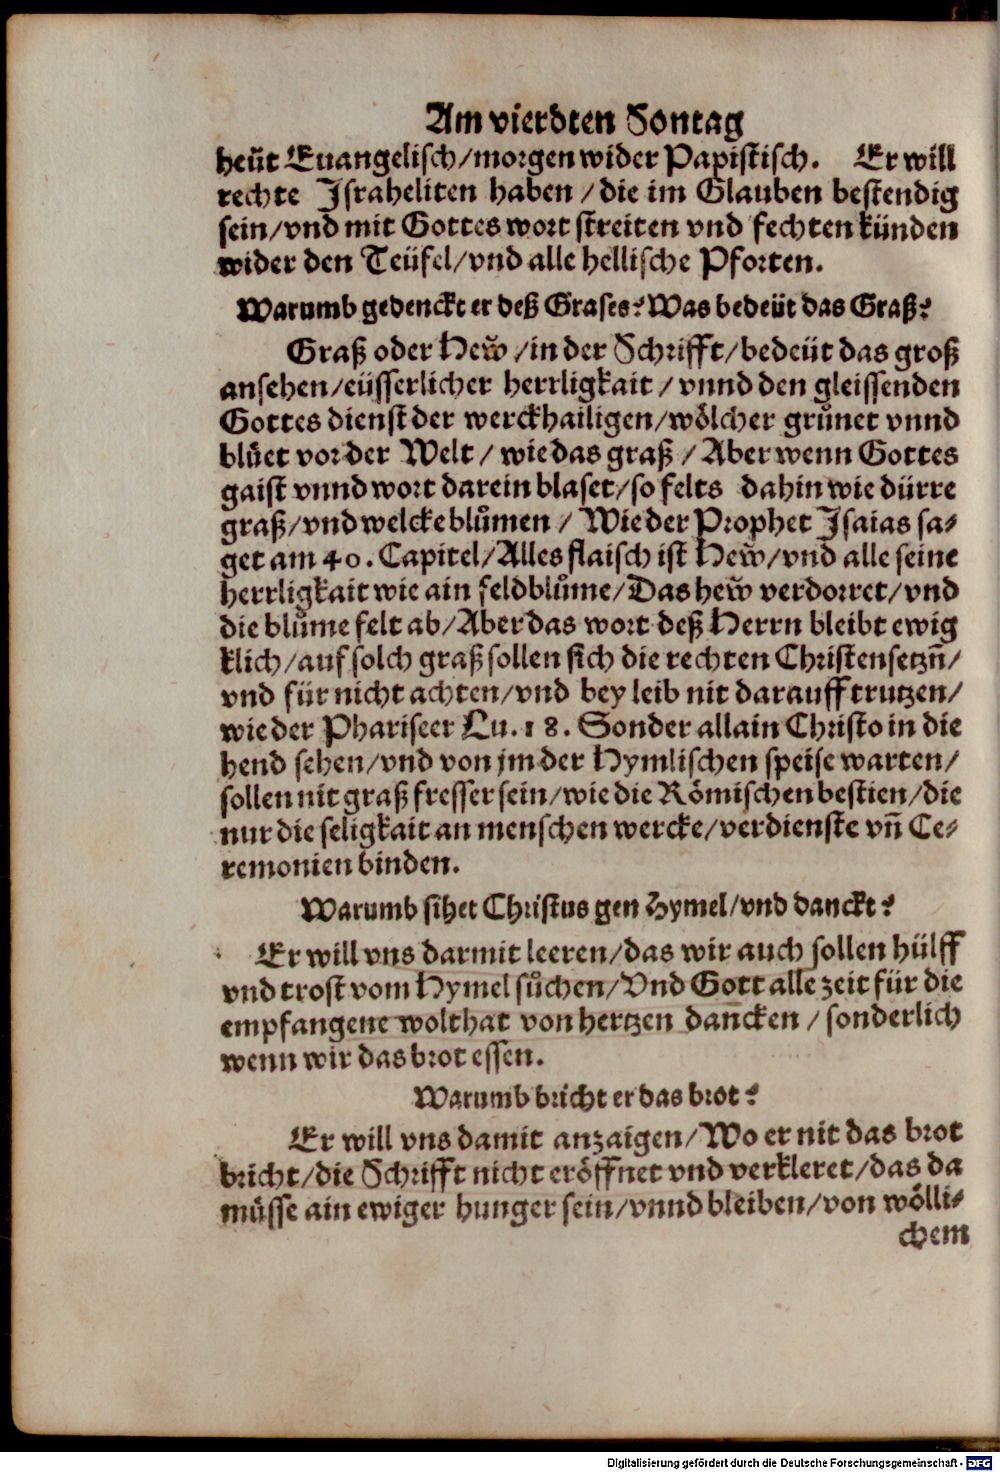 Am vierdten Sontag
heüt Euangelisch/morgen wider Papistisch. Er will
rechte Israheliten haben/die im Glauben bestendig
sein/vnd mit Gottes wort streiten vnd fechten künden
wider den Teüfel/vnd alle hellische Pforten.
Warumb gedenckt er deß Grases? Was bedeüt das Graß?
Graß oder Hew̌/in der Schrifft/bedeüt das groß
ansehen/eüsserlicher herrligkait/vnnd den gleissenden
Gottes dienst der werckhailigen/wölcher grůnet vnnd
blüet vor der Welt/wie das graß/Aber wenn Gottes
gaist vnnd wort darein blaset/so felts dahin wie dürre
graß/vnd welcke blůmen/Wie der Prophet Isaias sa-
get am 40. Capitel/Alles flaisch ist Hew̌/vnd alle seine
herrligkait wie ain feldblůme/Das hew̌ verdorret/vnd
die blůme felt ab/Aber das wort deß Herrn bleibt ewig
klich/auf solch graß sollen sich die rechten Christen setzñ/
vnd für nicht achten/vnd bey leib nit darauff trutzen/
wie der Phariseer Lu. 18. Sonder allain Christo in die
hend sehen/vnd von jm der Hymlischen speise warten/
sollen nit graß fresser sein/wie die Römischen bestien/die
nur die seligkait an menschen wercke/verdienste vñ Ce-
remonien binden.
Warumb sihet Christus gen Hymel/vnd danckt?
Er will vns darmit leeren/das wir auch sollen hülff
vnd trost vom Hymel sůchen/Vnd Gott alle zeit für die
empfangene wolthat von hertzen dancken/sonderlich
wenn wir das brot essen.
Warumb bricht er das brot?
Er will vns damit anzaigen/Wo er nit das brot
bricht/die Schrifft nicht eröffnet vnd verkleret/das da
müsse ain ewiger hunger sein/vnnd bleiben/von wölli-
chem
Digitalisierung gefördert durch die Deutsche Forschungsgemeinschaft - DFG